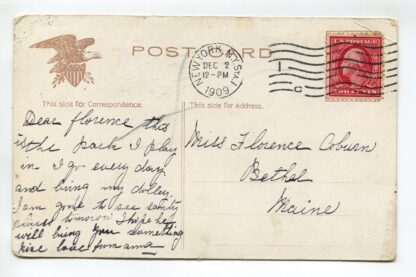 POST CARD
NEW YORK, N.Y. STA.
DEC 2
12-PM
1909
1
C
U.S. POSTAGE
TWO CENTS
This side for Correspondence.
This side for Address.
Dear florence this
is the park I play
in I go every day
and bring my dolley.
I am gone to see santy
claus tomorow I hope he
will bring you something
nice love from anna
Miss Florence Coburn
Bethel
Maine